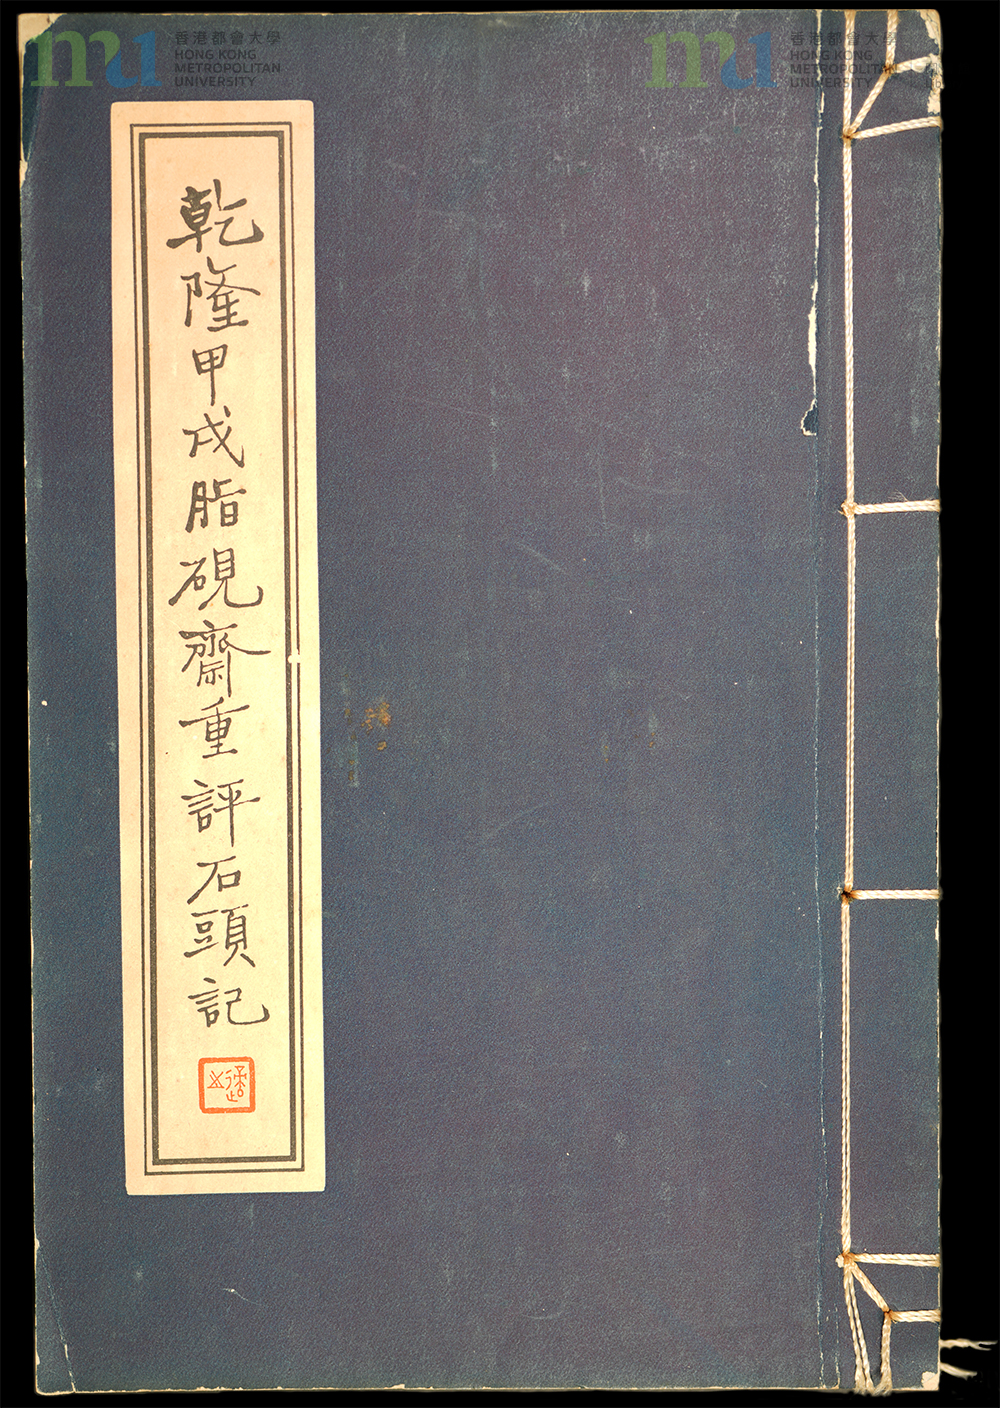 香港都會大學
HONG KONG
METROPOLITAN
UNIVERSITY
香港都會大學
HONG KONG
METROPOLITAN
UNIVERSITY
乾隆甲戌脂硯齋重評石頭記